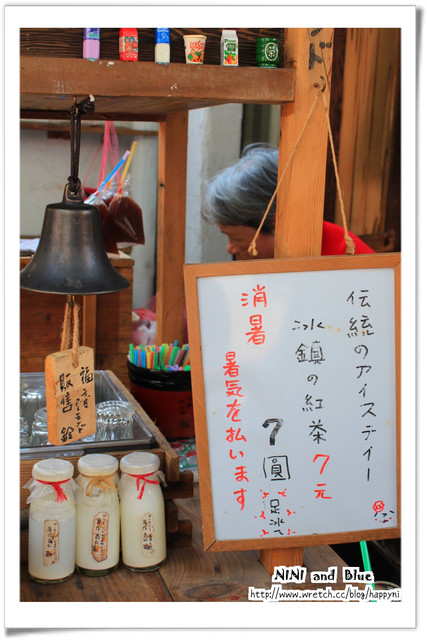 伝統のアイスティー
氷鎮の紅茶7元
7圓 足冰
消暑
暑気を払います
販售鈴
NiNi and Blue
http://www.wretch.cc/blog/happyni